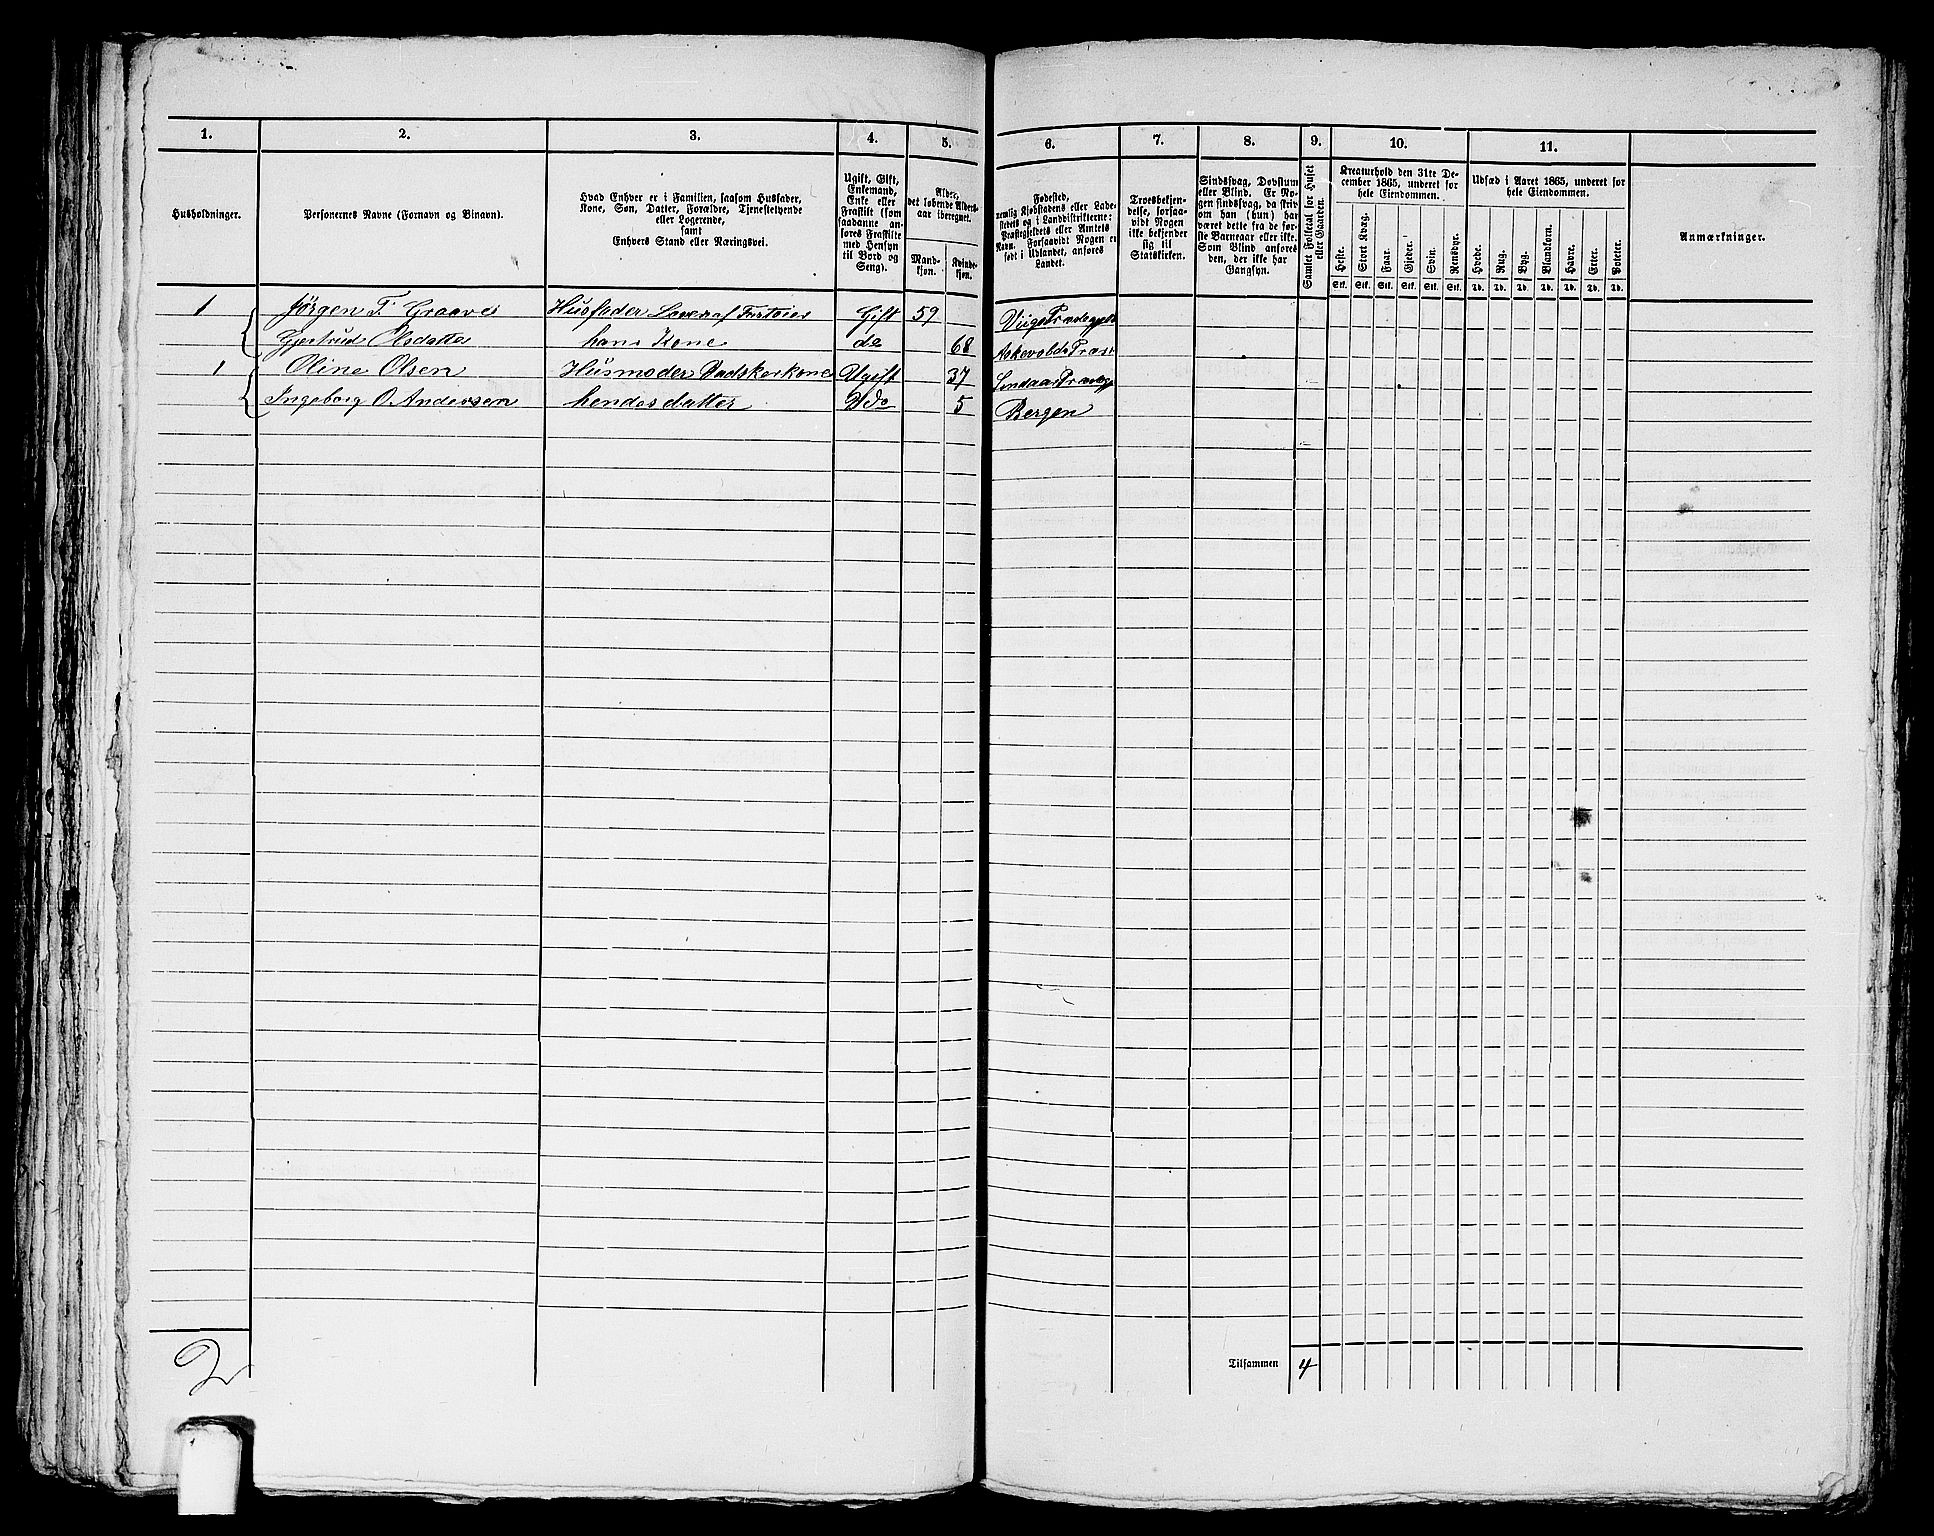 1. 2. 3. 4. 5. 6. 7. 8. 9. 10. 11.
Husholdninger.
Personernes Navne (Fornavn og Binavn).
Hvad Enhver er i Familien, saasom Husfader,
Kone, Søn, Datter, Forældre, Tjenestetyende
eller Logerende,
samt
Enhvers Stand eller Næringsvei.
Ugift, Gift,
Enkemand,
Enke eller
Fraskilt (som
saadanne an-
føres Fraskilte
med Hensyn
til Bord og
Seng).
Alder,
det løbende Alders-
aar iberegnet.
Mand-
kjøn.
Kvinde-
kjøn.
Fødested,
nemlig Kjøbstadens eller Lade-
stedets og i Landdistrikterne:
Præstegjeldets eller Amtets
Navn. Forsaavidt Nogen er
født i Udlandet, anføres
Landet.
Troesbekjen-
delse, forsaa-
vidt Nogen
ikke bekjender
sig til
Statskirken.
Sindssvag, Døvstum
eller Blind. Er No-
gen sindssvag, da skriv
om han (hun) har
været dette fra de før-
ste Barneaar eller ikke.
Som Blind anføres
den, der ikke har
Gangsyn.
Samlet Folketal for Huset
eller Gaarden.
Kreaturhold den 31te De-
cember 1865, underet for
hele Eiendommen.
Heste. Stort Kvæg. Faar. Gjeder. Svin. Rensdyr.
Stk. Stk. Stk. Stk. Stk. Stk.
Udsæd i Aaret 1865, underet for
hele Eiendommen.
Hvede. Rug. Byg. Blandkorn. Havre. Erter. Poteter.
Td. Td. Td. Td. Td. Td. Td.
Anmærkninger.
1 Jørgen T. Graave Husfader Laver af Gift 59
Gjertrud Olsdatter hans Kone do 68
1 Oline Olsen Husmoder Vadskerkone Ugift 37
Ingeborg O. Andersen hendes datter do 5 Bergen
2
Tilsammen 4